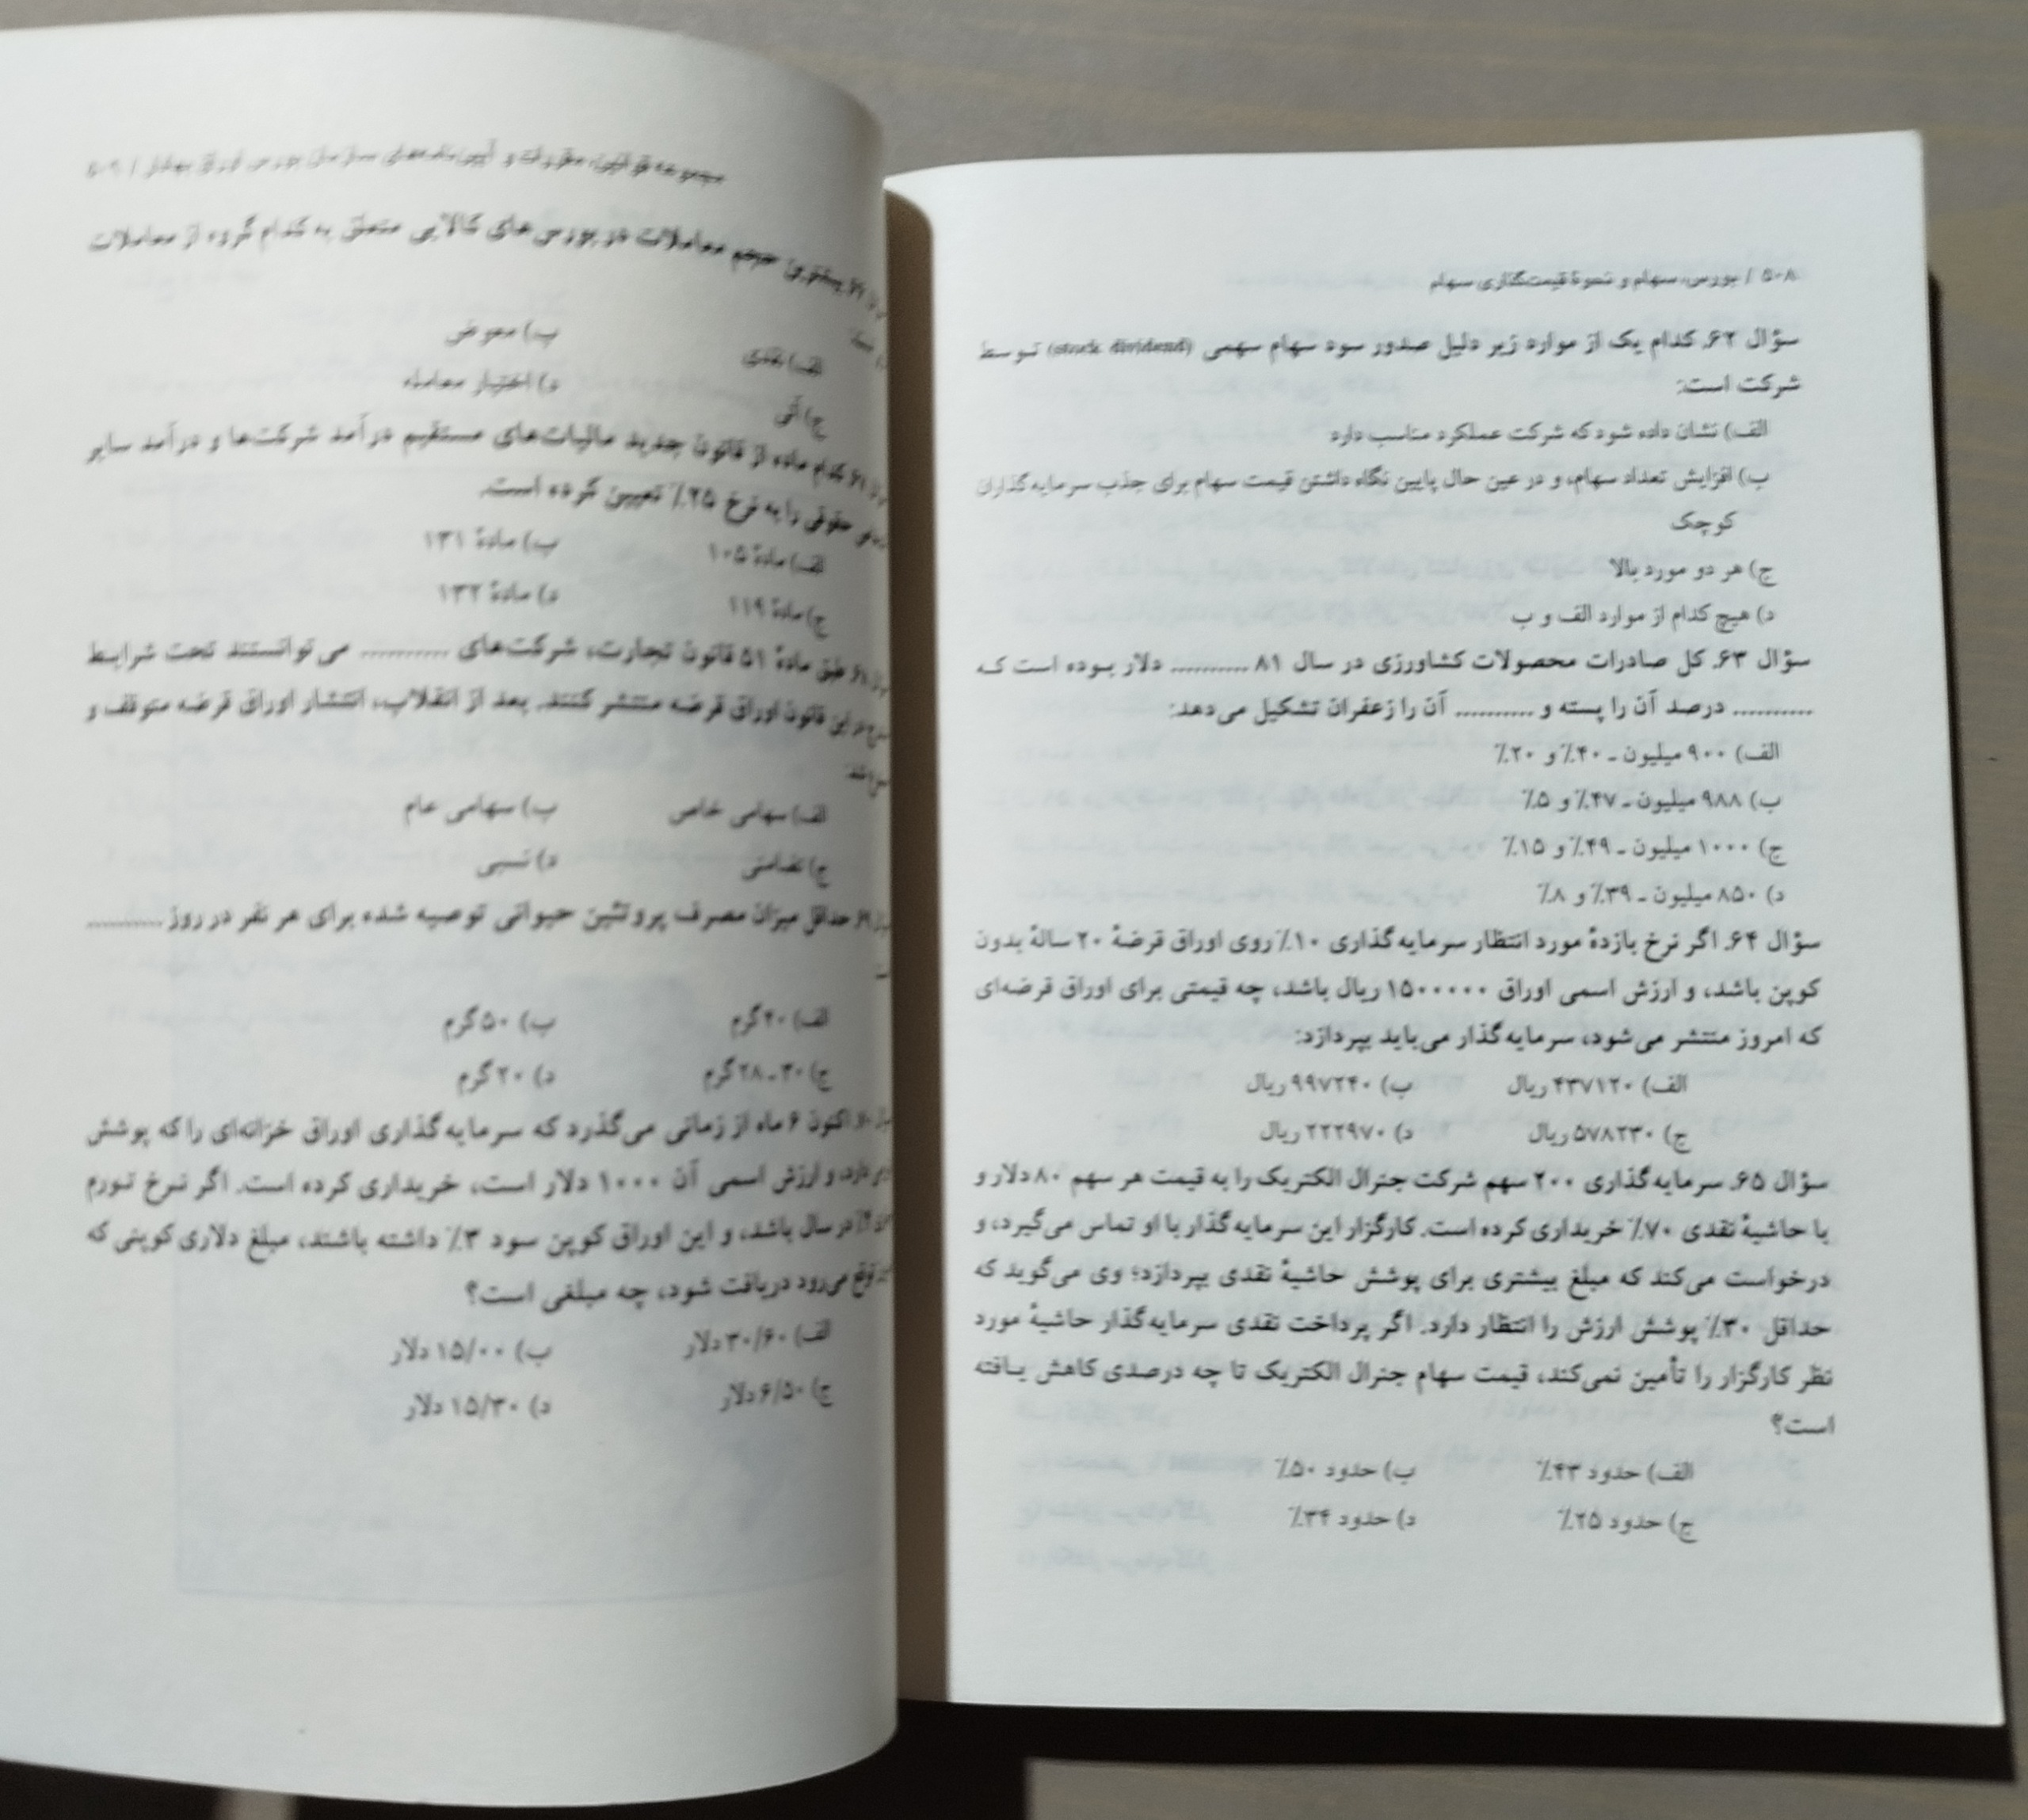 ۵۰۸ / بورس، سهام و نحوهٔ قیمت‌گذاری سهام
سؤال ۶۲. کدام یک از موارد زیر دلیل صدور سود سهام سهمی (stock dividend) توسط
شرکت است:
الف) نشان داده شود که شرکت عملکرد مناسب دارد
ب) افزایش تعداد سهام، و در عین حال پایین نگاه داشتن قیمت سهام برای جذب سرمایه‌گذاران
کوچک
ج) هر دو مورد بالا
د) هیچ کدام از موارد الف و ب
سؤال ۶۳. کل صادرات محصولات کشاورزی در سال ۸۱ .......... دلار بوده است که
.......... درصد آن را پسته و .......... آن را زعفران تشکیل می‌دهد:
الف) ۹۰۰ میلیون ـ ۴۰٪ و ۲۰٪
ب) ۹۸۸ میلیون ـ ۴۷٪ و ۵٪
ج) ۱۰۰۰ میلیون ـ ۴۹٪ و ۱۵٪
د) ۸۵۰ میلیون ـ ۳۹٪ و ۸٪
سؤال ۶۴. اگر نرخ بازدهٔ مورد انتظار سرمایه‌گذاری ۱۰٪ روی اوراق قرضهٔ ۲۰ سالهٔ بدون
کوپن باشد، و ارزش اسمی اوراق ۱۵۰۰۰۰۰ ریال باشد، چه قیمتی برای اوراق قرضه‌ای
که امروز منتشر می‌شود، سرمایه‌گذار می‌باید بپردازد:
الف) ۴۳۷۱۲۰ ریال
ب) ۹۹۷۲۴۰ ریال
ج) ۵۷۸۲۳۰ ریال
د) ۲۲۲۹۷۰ ریال
سؤال ۶۵. سرمایه‌گذاری ۲۰۰ سهم شرکت جنرال الکتریک را به قیمت هر سهم ۸۰ دلار و
با حاشیهٔ نقدی ۷۰٪ خریداری کرده است. کارگزار این سرمایه‌گذار با او تماس می‌گیرد، و
درخواست می‌کند که مبلغ بیشتری برای پوشش حاشیهٔ نقدی بپردازد؛ وی می‌گوید که
حداقل ۳۰٪ پوشش ارزش را انتظار دارد. اگر پرداخت نقدی سرمایه‌گذار حاشیهٔ مورد
نظر کارگزار را تأمین نمی‌کند، قیمت سهام جنرال الکتریک تا چه درصدی کاهش یافته
است؟
الف) حدود ۴۳٪
ب) حدود ۵۰٪
ج) حدود ۲۵٪
د) حدود ۳۴٪
مجموعه قوانین، مقررات و آیین‌نامه‌های سازمان بورس اوراق بهادار / ۵۰۹
بیشترین حجم معاملات در بورس‌های کالایی متعلق به کدام گروه از معاملات
الف) نقدی
ب) معوض
ج) آتی
د) اختیار معامله
کدام ماده از قانون جدید مالیات‌های مستقیم درآمد شرکت‌ها و درآمد سایر
حقوقی را به نرخ ۲۵٪ تعیین کرده است.
الف) مادهٔ ۱۰۵
ب) مادهٔ ۱۳۱
ج) مادهٔ ۱۱۹
د) مادهٔ ۱۳۲
طبق مادهٔ ۵۱ قانون تجارت، شرکت‌های .......... می‌توانستند تحت شرایط
این قانون اوراق قرضه منتشر کنند. بعد از انقلاب، انتشار اوراق قرضه متوقف و
الف) سهامی خاص
ب) سهامی عام
ج) تضامنی
د) نسبی
حداقل میزان مصرف پروتئین حیوانی توصیه شده برای هر نفر در روز ..........
الف) ۴۰ گرم
ب) ۵۰ گرم
ج) ۳۰ ـ ۲۸ گرم
د) ۲۰ گرم
اکنون ۶ ماه از زمانی می‌گذرد که سرمایه‌گذاری اوراق خزانه‌ای را که پوشش
دارد، و ارزش اسمی آن ۱۰۰۰ دلار است، خریداری کرده است. اگر نرخ تورم
در سال باشد، و این اوراق کوپن سود ۳٪ داشته باشند، مبلغ دلاری کوپنی که
توقع می‌رود دریافت شود، چه مبلغی است؟
الف) ۳۰/۶۰ دلار
ب) ۱۵/۰۰ دلار
ج) ۶/۵۰ دلار
د) ۱۵/۳۰ دلار